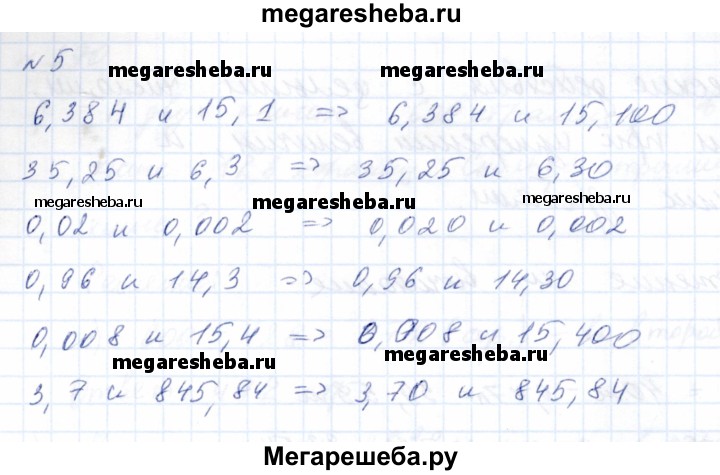 megaresheba.ru
N 5
megaresheba.ru megaresheba.ru
6,384 и 15,1 => 6,384 и 15,100
35,25 и 6,3 => 35,25 и 6,30
megaresheba.ru megaresheba.ru megaresheba.ru
0,02 и 0,002 => 0,020 и 0,002
0,96 и 14,3 => 0,96 и 14,30
0,008 и 15,4 => 0,008 и 15,400
megaresheba.ru megaresheba.ru
3,7 и 845,84 => 3,70 и 845,84
Мегарешеба.ру